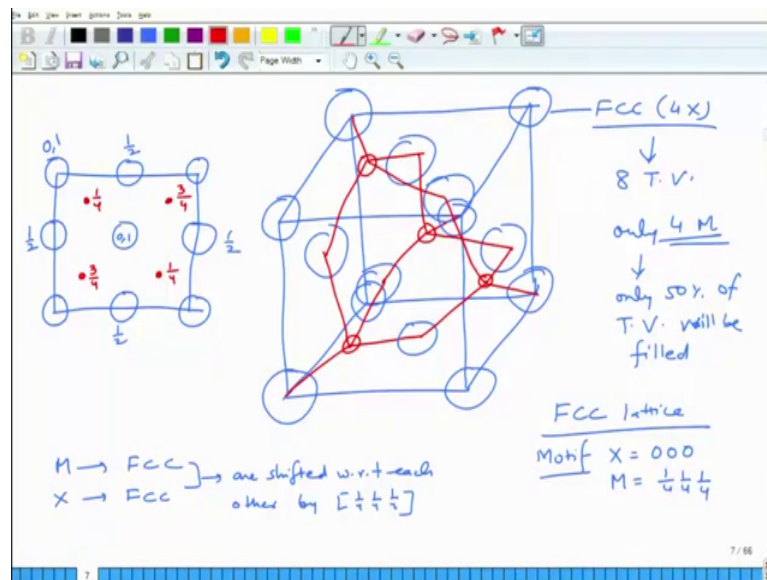 File Edit View Insert Actions Tools Help
B I
Page Width
0,1
1/2
1/4
3/4
1/2
0,1
1/2
3/4
1/4
1/2
FCC (4X)
↓
8 T.V.
only 4 M
↓
only 50% of
T.V. will be
filled
FCC lattice
Motif X = 000
M = 1/4 1/4 1/4
M → FCC
X → FCC
→ are shifted w.r.t each
other by [1/4 1/4 1/4]
7 / 66
7